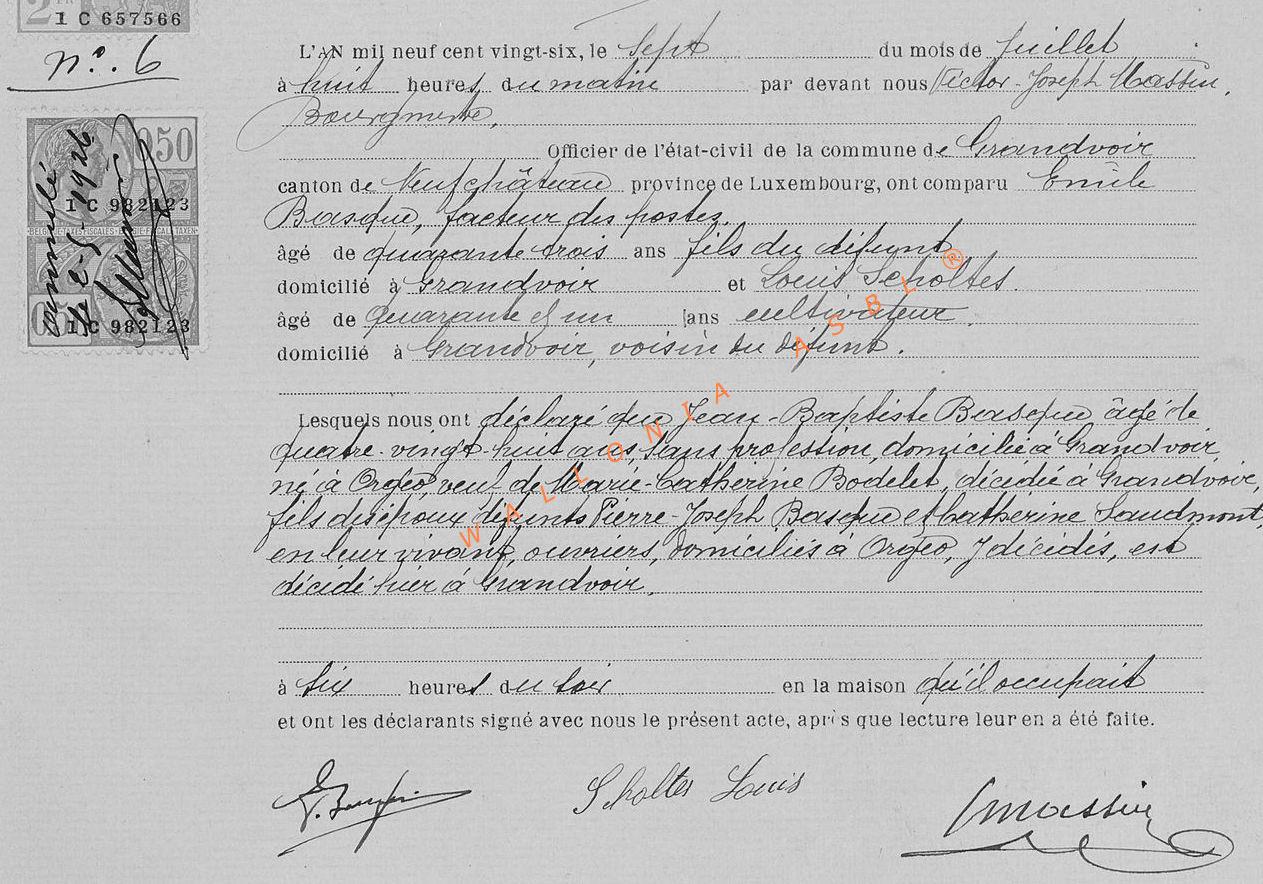 1 C 657566
n°. 6
L'AN mil neuf cent vingt-six, le sept du mois de juillet
à huit heures du matin par devant nous Victor-Joseph Massin,
Bourgmestre,
Officier de l'état-civil de la commune de Grandvoir
canton de Neufchâteau province de Luxembourg, ont comparu Emile
Basque, facteur des postes,
âgé de quarante trois ans fils du défunt
domicilié à Grandvoir et Louis Scholtes.
âgé de quarante et un ans cultivateur,
domicilié à Grandvoir, voisin du défunt.
Lesquels nous ont déclaré que Jean-Baptiste Basque âgé de
quatre-vingt-huit ans, sans profession, domicilié à Grandvoir,
né à Orgeo, veuf de Marie-Catherine Bodelet, décédée à Grandvoir,
fils des époux défunts Pierre-Joseph Basque et Catherine Laudmont,
en leur vivant, ouvriers, domiciliés à Orgeo, y décédés, est
décédé hier à Grandvoir,
à six heures du soir en la maison qu'il occupait
et ont les déclarants signé avec nous le présent acte, après que lecture leur en a été faite.
Scholtes Louis
Massin
050
1 C 982123
1 C 982123
annulé
1926
WALLONIA ASBL ®